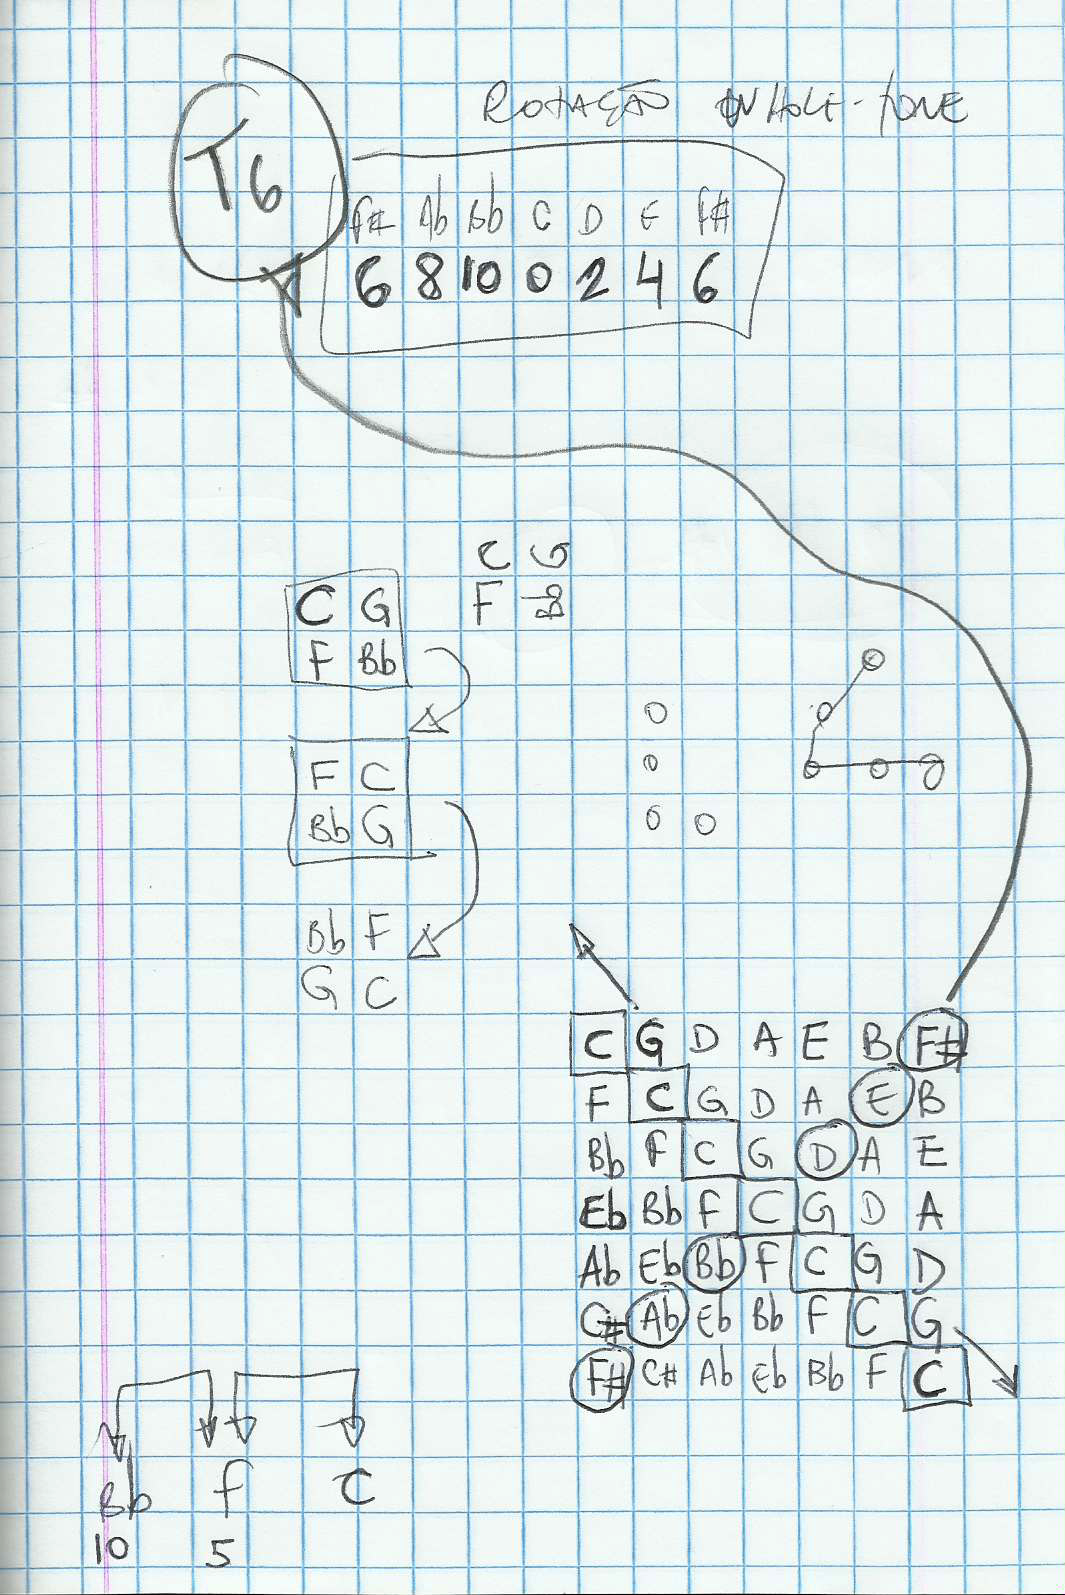 ROTAÇÃO WHOLE-TONE
T6
F# Ab Bb C D E F#
6 8 10 0 2 4 6
C G
F Bb
C G
F Bb
F C
Bb G
Bb F
G C
C G D A E B F#
F C G D A E B
Bb F C G D A E
Eb Bb F C G D A
Ab Eb Bb F C G D
C# Ab Eb Bb F C G
F# C# Ab Eb Bb F C
Bb F C
10 5